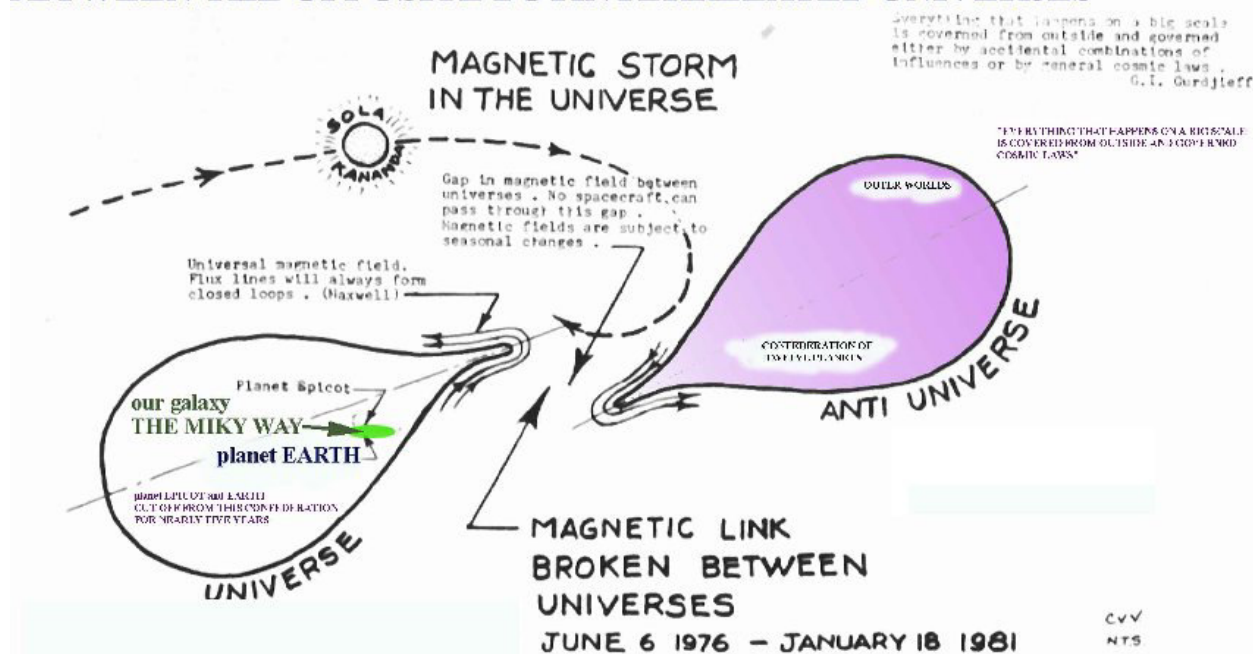 MAGNETIC STORM
IN THE UNIVERSE
Everything that happens on a big scale
is governed from outside and governed
either by accidental combinations of
influences or by general cosmic laws .
G.I. Gurdjieff
"EVERYTHING THAT HAPPENS ON A BIG SCALE
IS COVERED FROM OUTSIDE AND GOVERNED
COSMIC LAWS"
SOLA
KANANDA
Gap in magnetic field between
universes . No spacecraft can
pass through this gap .
Magnetic fields are subject to
seasonal changes .
OUTER WORLDS
Universal magnetic field.
Flux lines will always form
closed loops . (Maxwell)
CONFEDERATION OF
TWELVE PLANETS
ANTI UNIVERSE
Planet Epicot
our galaxy
THE MIKY WAY
planet EARTH
planet EPICOT and EARTH
CUT OFF FROM THIS CONFEDERATION
FOR NEARLY FIVE YEARS
UNIVERSE
MAGNETIC LINK
BROKEN BETWEEN
UNIVERSES
JUNE 6 1976 – JANUARY 18 1981
CVV
NTS